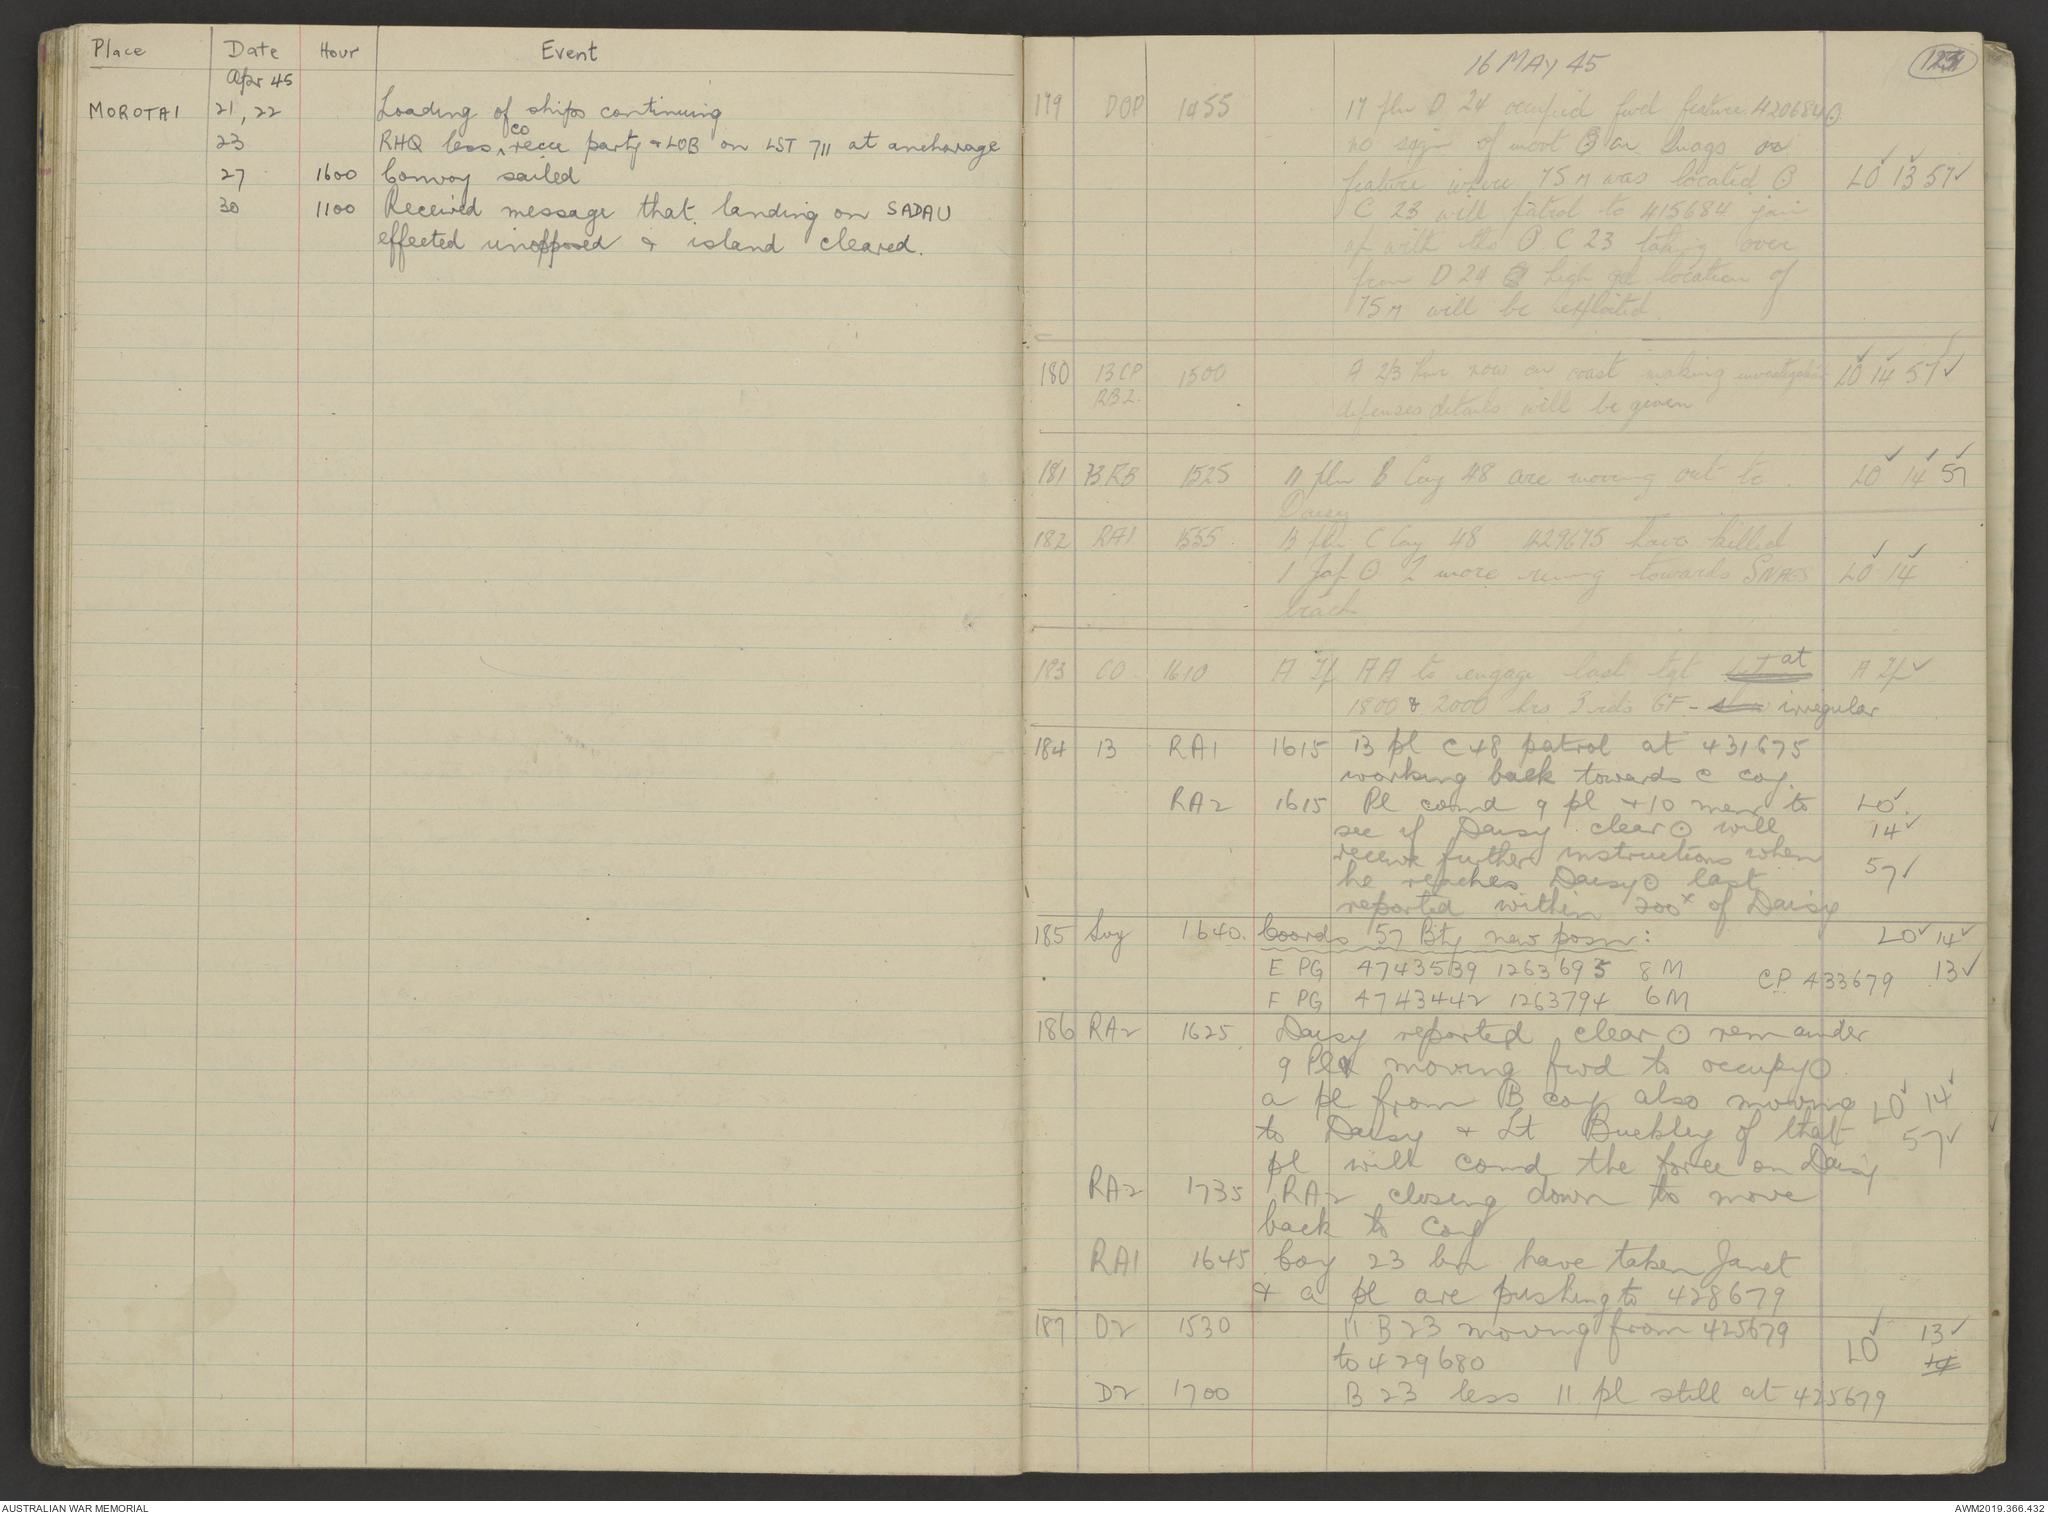 Place Date Hour Event
Apr 45
MOROTAI 21, 22 Loading of ships continuing
23 RHQ less CO recce party + LOB on LST 711 at anchorage
27 1600 Convoy sailed
30 1100 Received message that landing on SADAU
effected unopposed & island cleared.
16 MAY 45
179 DOP 1455 17 pln D 24 occupied fwd feature 420684 ⊙
no sign of mort ⊙ on Snags
feature where 75 M was located ⊙ LO ✓ 13 ✓ 57 ✓
C 23 will patrol to 415684 join
up with ⊙ C 23 taking over
from D 24 ⊙ high location of
75 M will be exploited.
180 13 CP 1500 A 23 now on coast making investigation LO ✓ 14 ✓ 57 ✓
RB2. defenses details will be given
181 RB 1525 11 pln B Coy 48 are moving out to LO ✓ 14 ✓ 57 ✓
Daisy
182 RA1 1555 13 pln C Coy 48 429675 have killed
1 Jap ⊙ 2 more running towards SNAGS LO ✓ 14 ✓
beach
183 CO 1610 A Tp AA to engage last tgt at A Tp ✓
1800 & 2000 hrs 3 rds GF - irregular
184 13 RA1 1615 13 pl C 48 patrol at 431675
working back towards C coy.
RA2 1615 Pl comd 9 pl + 10 men to LO ✓
see if Daisy clear ⊙ will 14 ✓
receive further instructions when
he reaches Daisy ⊙ last 57 ✓
reported within 200ˣ of Daisy
185 Svy 1640. Coords 57 Bty new posn: LO ✓ 14 ✓
E PG 4743539 1263693 8 M CP 433679 13 ✓
F PG 4743442 1263794 6 M
186 RA2 1625 Daisy reported clear ⊙ remainder
9 Pl moving fwd to occupy ⊙
a pl from B coy also moving LO ✓ 14 ✓
to Daisy + Lt Buckley of that 57 ✓
pl will comd the force on Daisy
RA2 1735 RA2 closing down to move
back to Coy
RA1 1645 Coy 23 bn have taken Janet
+ a pl are pushing to 428679
187 D2 1530 11 B 23 moving from 425679 LO ✓ 13 ✓
to 429680 14
D2 1700 B 23 less 11 pl still at 425679
AUSTRALIAN WAR MEMORIAL AWM2019.366.432